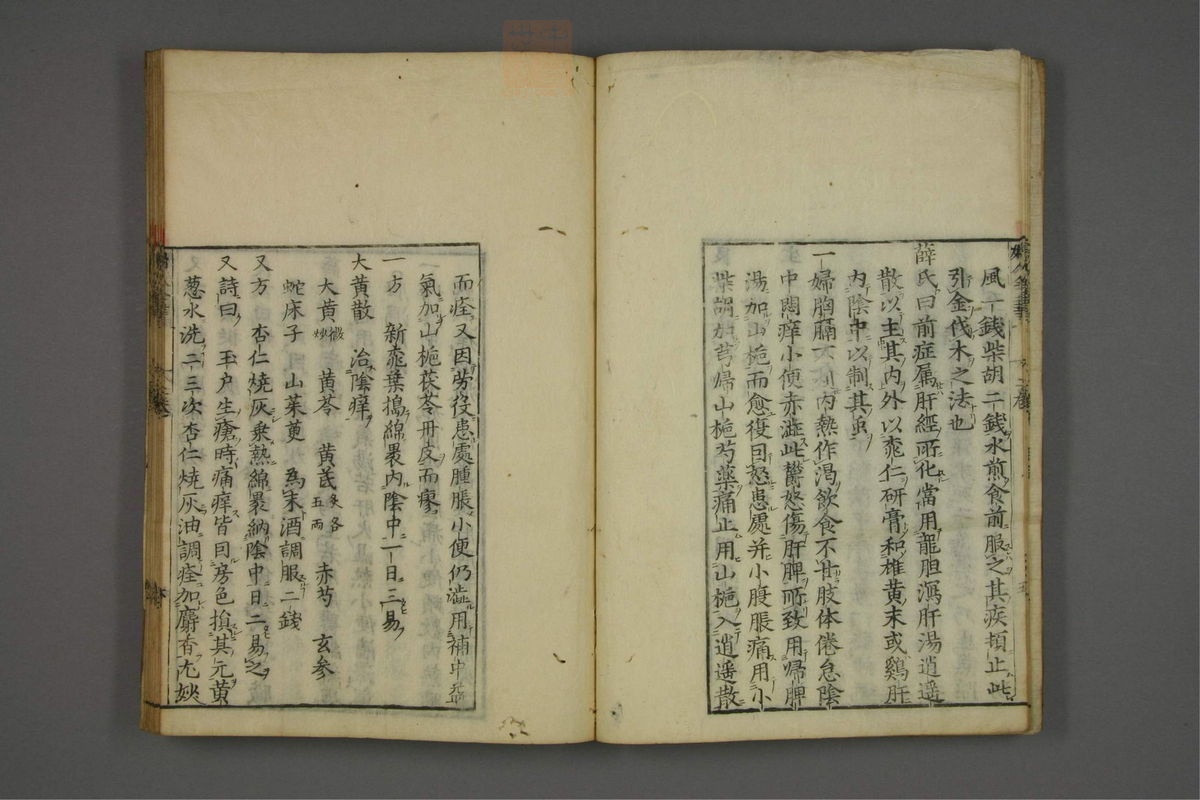 風一錢柴胡二錢水煎食前服之其疾頓止此
引金伐木之法也
薛氏曰前症属肝經所化當用龍胆瀉肝湯逍遥
散以主其内外以桃仁研膏和雄黄末或鷄肝
内陰中以制其虫
一婦胸膈不利内熱作渴飲食不甘肢体倦怠陰
中悶痒小便赤澁此欝怒傷肝脾所致用帰脾
湯加山梔而愈復因怒患處并小腹脹痛用小
柴胡加芎帰山梔芍薬痛止用山梔入逍遥散
而痊又因労役患處腫脹小便仍澁用補中益
氣加山梔茯苓丹皮而瘳
一方 新桃葉搗綿裹内陰中一日三易
大黄散 治陰痒
大黄微炒 黄芩 黄芪炙各五兩 赤芍 玄参
蛇床子 山茱萸 為末酒調服二錢
又方 杏仁燒灰乗熱綿裹納陰中日二易之
又詩曰 玉户生瘡時痛痒皆因房色損其元黄
葱水洗二三次杏仁燒灰油調痊加麝香尤妙